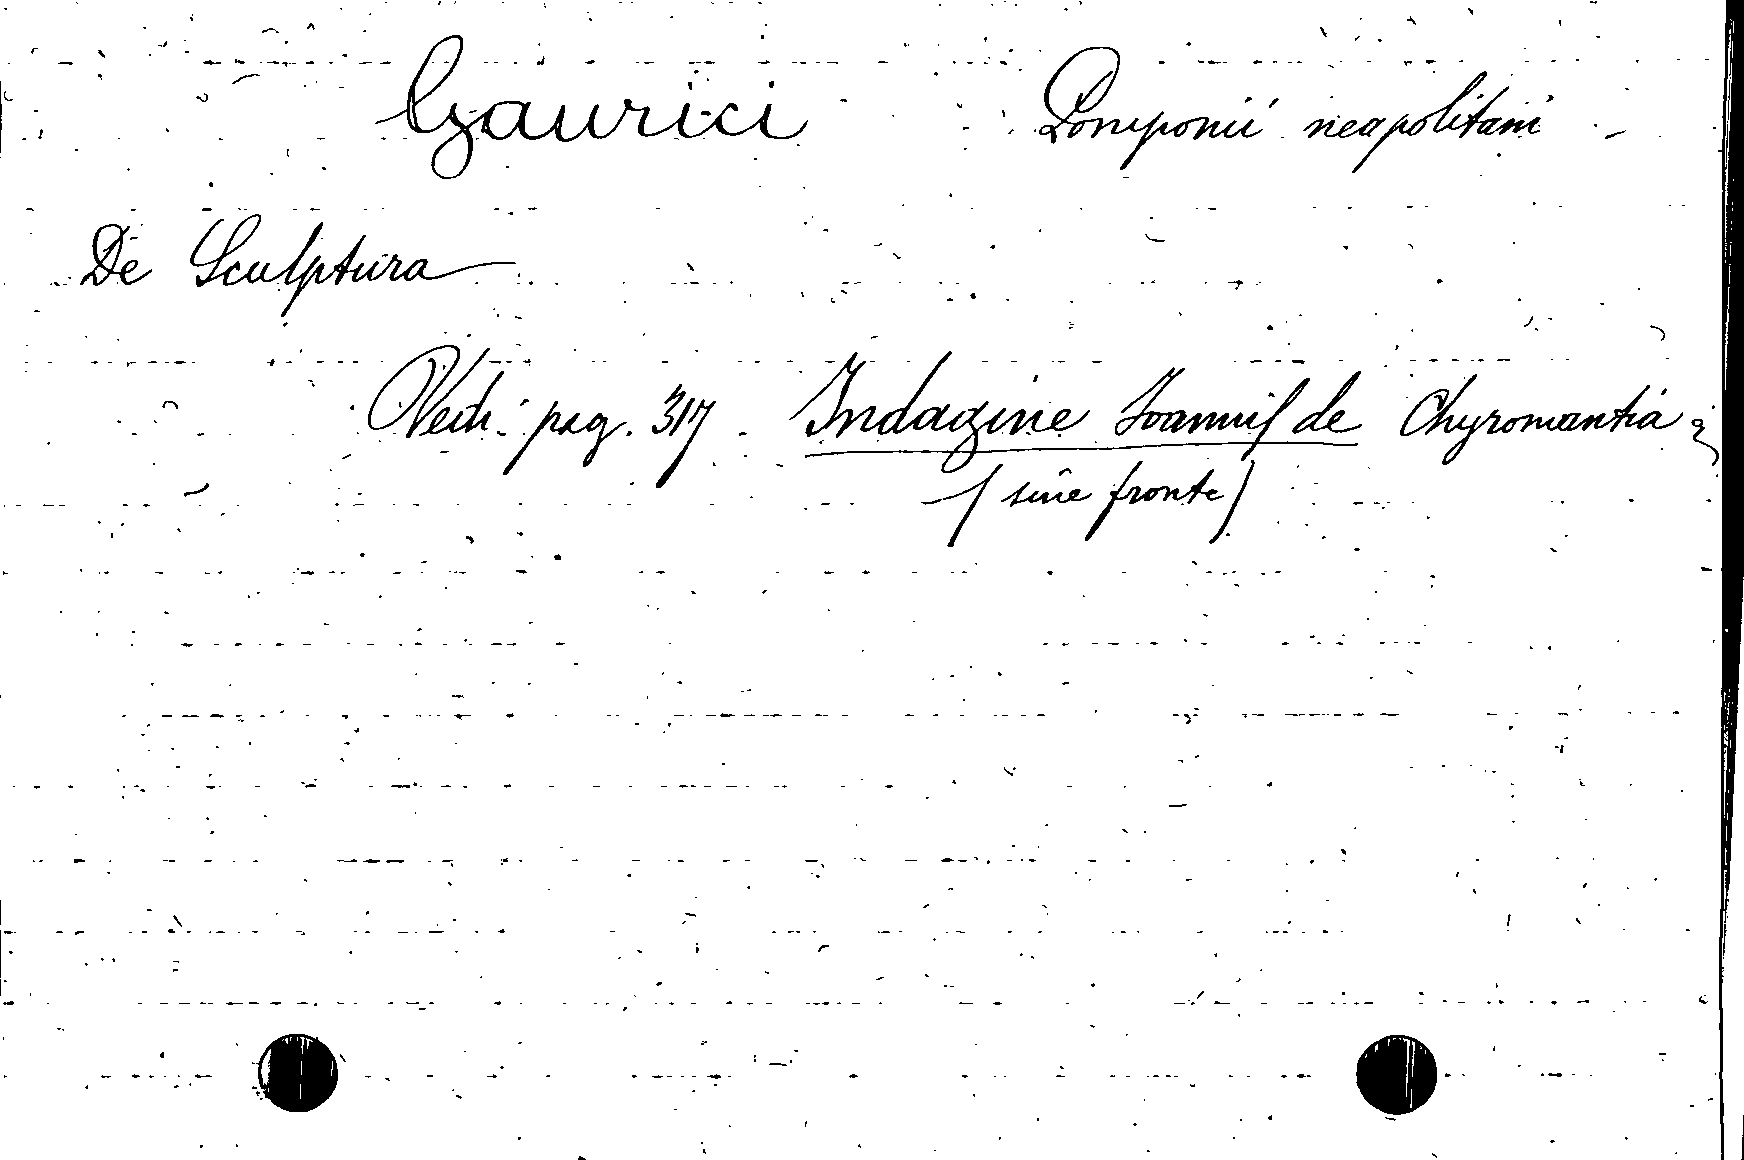 Gaurici Pomponii neapolitani -
De Sculptura
Vedi: pag. 317. Indagine Joannis de Chyromantia
(sine fronte)